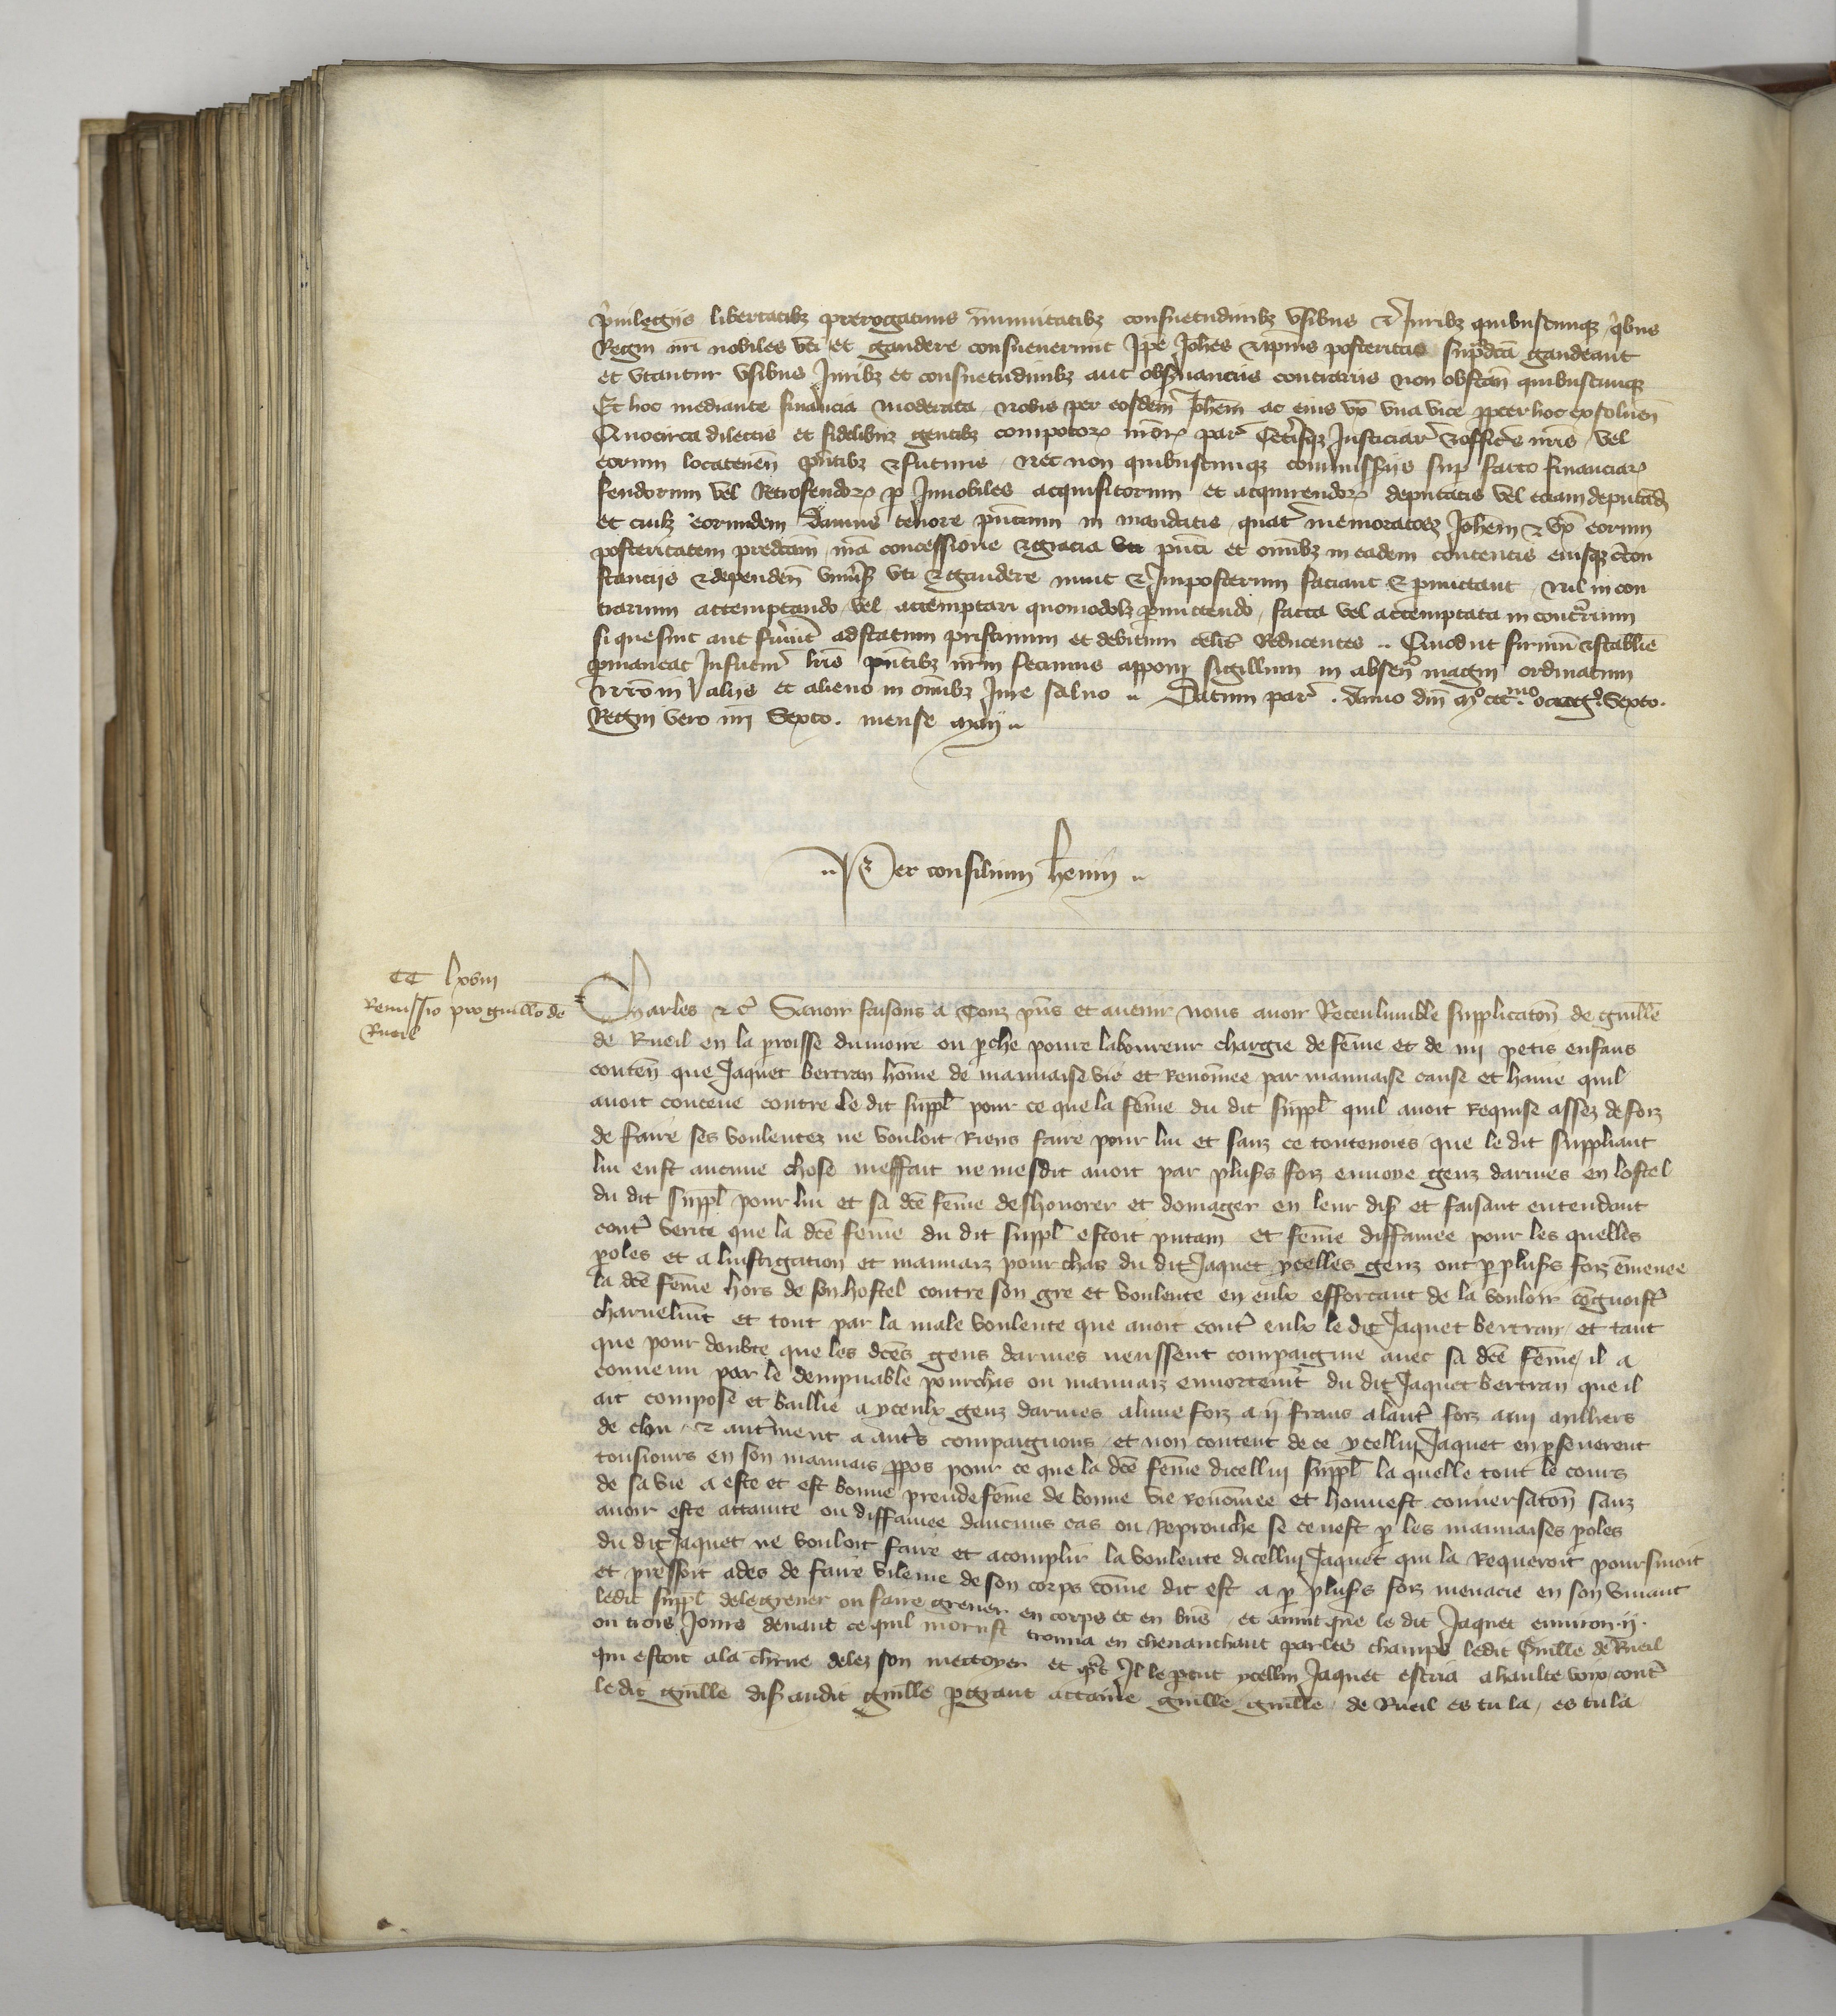 p̾uilegiis libertatibz prerogatiuis īmunitatibz consuetudinibz vsibus et Juribz quibuscunqz q̾bus
Regni nr̄i nobiles vti et gaudere consueuerunt Ip̄e Joh̄es et ip̄ius posteritas sup̾dc̄a gaudeant
et vtantur vsibus Juribz et consuetudinibz aut obs̾uanciis contrariis non obstan̄ quibuscunqz
Et hoc mediante financia moderata nobis per eosdem Joh̄em ac eius vx̄ vna vice pp̄ter hoc exsoluen̄
Quocirca dilectis et fidelibus gentibz compotoꝝ nr̄oꝝ par̾ Cet̾isqz Justiciar̾ et offic̾is nr̄is vel
eorum locatenen̄ pn̄tibz et futuris nec non quibuscunqz commissariis sup̾ facto financiaꝝ
feudorum vel Retrofeudoꝝ p̲ Innobiles acquisitorum et acquirendoꝝ deputatis vel eciam deputād̄
et cuilz eorumdem Damus tenore pn̄cium in mandatis quat̾ memoratos Joh̄em et vx̄ eorum
posteritatem predc̄am nr̄a concessione et gracia pn̄ti et om̄ibz in eadem contentis eiusqz c̄con
stanciis et dependen̄ vniu̾s̾ vti et gaudere nunc et Imposterum faciant et p̲mictant nil in con
trarium attemptando vel attemptari quomodolz p̲mictendo facta vel attemptata in contr̾rium
si que sint aut fu̾int ad statum pristinum et debitum cel̾it̾ reducentes .. Quod ut firmū et stabile
p̲maneat Infutur̾ lr̄is pn̄tibz nr̄m fecimus apponi sigillum in absen̄ magni ordinatum
nr̄o in aliis et alieno in om̄ibz Jure saluo .. Datum par̾ . Anno dn̄i mº cccmo. octogº. Sexto.
Regni vero nr̄i Sexto . mense maii ..
.. Per consilium h̄enin ..
CC lxviii
Remissio pro guill̄o de
Rueil
Charles et c̾ Sauoir faisons a Touz pn̄s et auenir nous auoir Receu lumble supplicacōn de guill̄e
de Rueil en la p̲roisse dumoire ou p̲che poure laboureur chargie de fēme et de iiii petis enfans
conten̄ que Jaquet bertran hōme de mauuaise vie et renōmee par mauuaise cause et haine quil
auoit conceue contre le dit suppl̾ pour ce que la fēme du dit suppl̾ quil auoit Requise assez de foiz
de faire ses voulentez ne vouloit Riens faire pour lui et sanz ce toutenoies que le dit suppliant
lui eust aucune chose meffait ne mesdit auoit par plus̾s foiz enuoye genz darmes en lostel
du dit suppl̾ pour lui et sa dc̄e fēme deshonorer et domager en leur dis̾ et faisant entendant
cont̾ verite que la dc̄e fēme du dit suppl̾ estoit putain et fēme diffamee pour les quelles
p̲oles et a linstigation et mauuaiz pourchaz du dit Jaquet ycelles genz ont p̲ plus̾s foiz ēmenee
la dc̄e fēme hors de son hostel contre son gre et voulente en eulx efforcant de la vouloir cōgnoist̾
charnelmt̄ et tout par la male voulente que auoit cont̾ eulx le dit Jaquet bertran et tant
que pour doubte que les dc̄es gens darmes neussent compaignie auec sa dc̄e fēme il a
conuenu par le dempnable pourchas ou mauuaiz ennortemt̄ du dit Jaquet bertran que il
ait compose et baillie a yceulx genz darmes alune foiz a ii frans a laut̾ foiz a iiii
de et aut̾ment a aut̾s compaignons et non content de ce ycellui Jaquet en p̲seuerent
tousiours en son mauuais pp̄os pour ce que la dc̄e fēme dicellui suppl̾ la quelle tout le cours
de sa vie a este et est bonne preudefēme de bonne vie renōmee et honnest conuersacōn sanz
auoir este attainte ou diffamee daucuns cas ou Reprouche se ce nest p̲ les mauuaises p̲oles
du dit Jaquet ne vouloit faire et acomplir la voulente dicellui Jaquet qui la Requeroit poursiuoit
et pressoit ades de faire vilenie de son corps cōme dit est a p̲ plus̾s foiz menacie en son viuant
ledit suppl̾ de le greuer ou faire greuer en corps et en biēs et auint que le dit Jaquet enuiron ii.
ou trois Jours deuant ce quil morust trouua en cheuauchant par les champs ledit Guill̄e de Rueil
qui estoit a la ch̾rue delez son mettoyer et q̄nt Il le p̲cut ycellui Jaquet escria a haulte voix cont̾
le dit guill̄e dis̾ audit guill̄e p̲ grant attaine guill̄e guill̄e de Rueil es tu la / es tu la